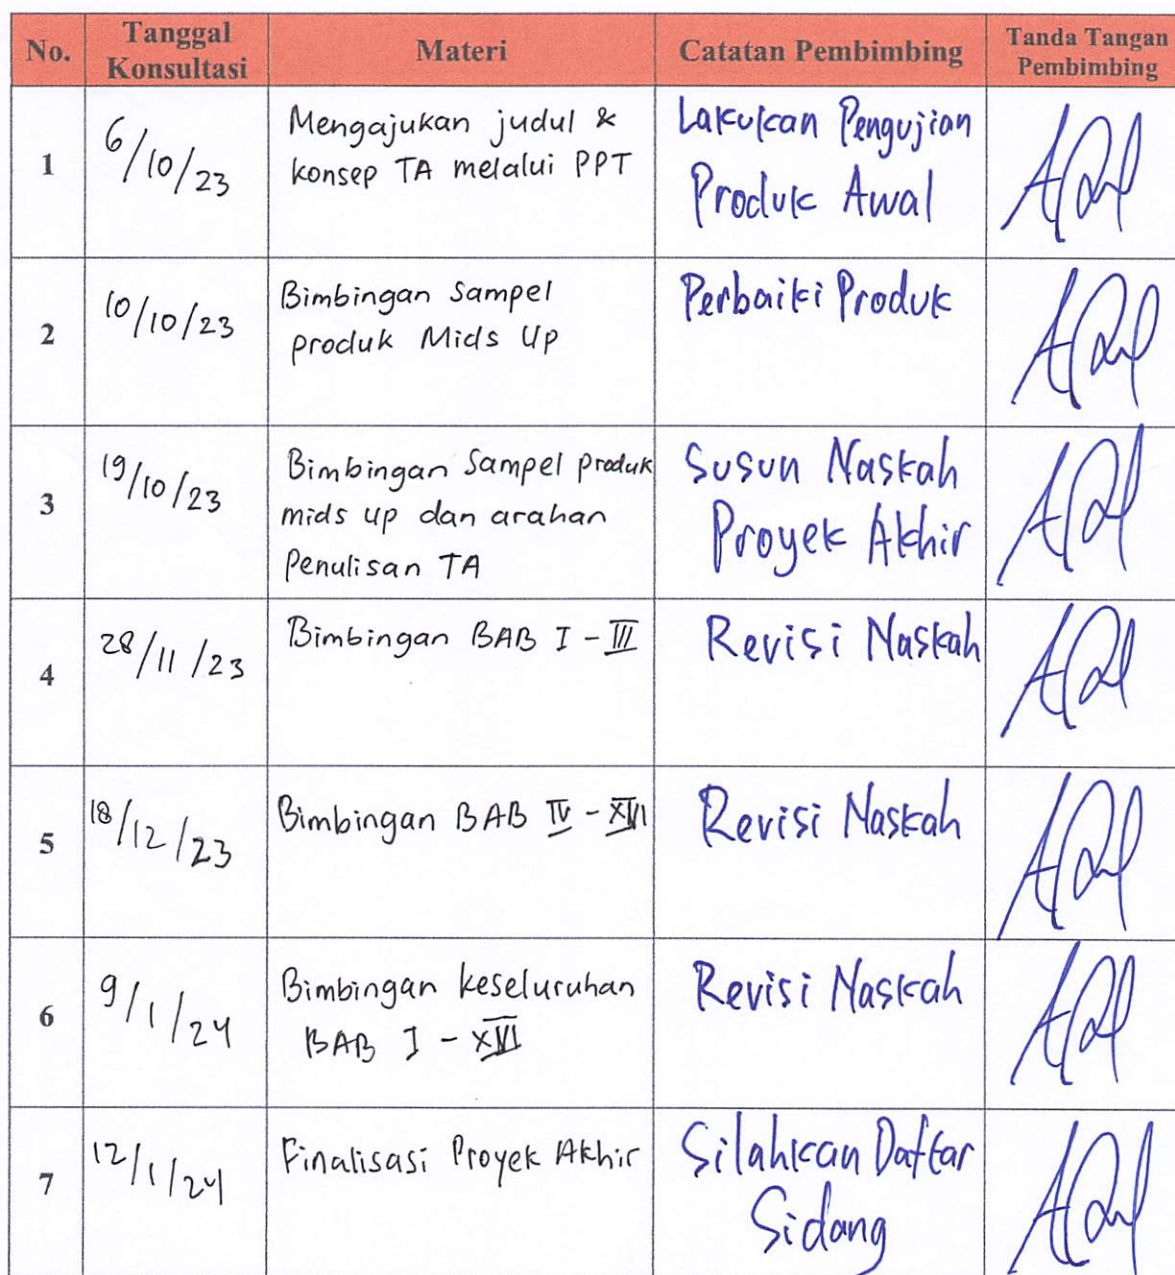 No.
Tanggal
Konsultasi
Materi
Catatan Pembimbing
Tanda Tangan
Pembimbing
1
6/10/23
Mengajukan judul &
konsep TA melalui PPT
Lakukan Pengujian
Produk Awal
2
10/10/23
Bimbingan Sampel
produk Mids Up
Perbaiki Produk
3
19/10/23
Bimbingan Sampel produk
mids up dan arahan
Penulisan TA
Susun Naskah
Proyek Akhir
4
28/11/23
Bimbingan BAB I - III
Revisi Naskah
5
18/12/23
Bimbingan BAB IV - XVI
Revisi Naskah
6
9/1/24
Bimbingan keseluruhan
BAB I - XVI
Revisi Naskah
7
12/1/24
Finalisasi Proyek Akhir
Silahkan Daftar
Sidang